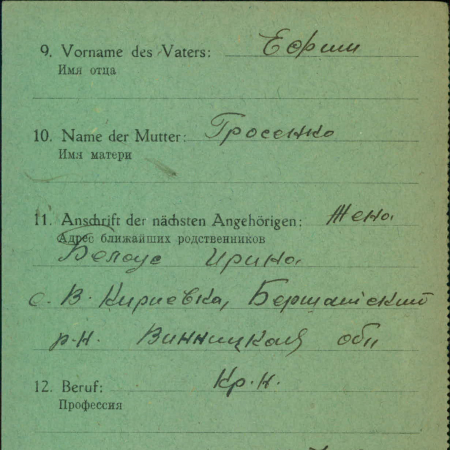 9. Vorname des Vaters: Ефим
Имя отца
10. Name der Mutter: Гросенко
Имя матери
11. Anschrift der nächsten Angehörigen: Жена
Адрес ближайших родственников
Белоус Ирина
с. В. Кириевка, Бершадский
р-н. Винницкая обл
12. Beruf: Кр-н.
Профессия